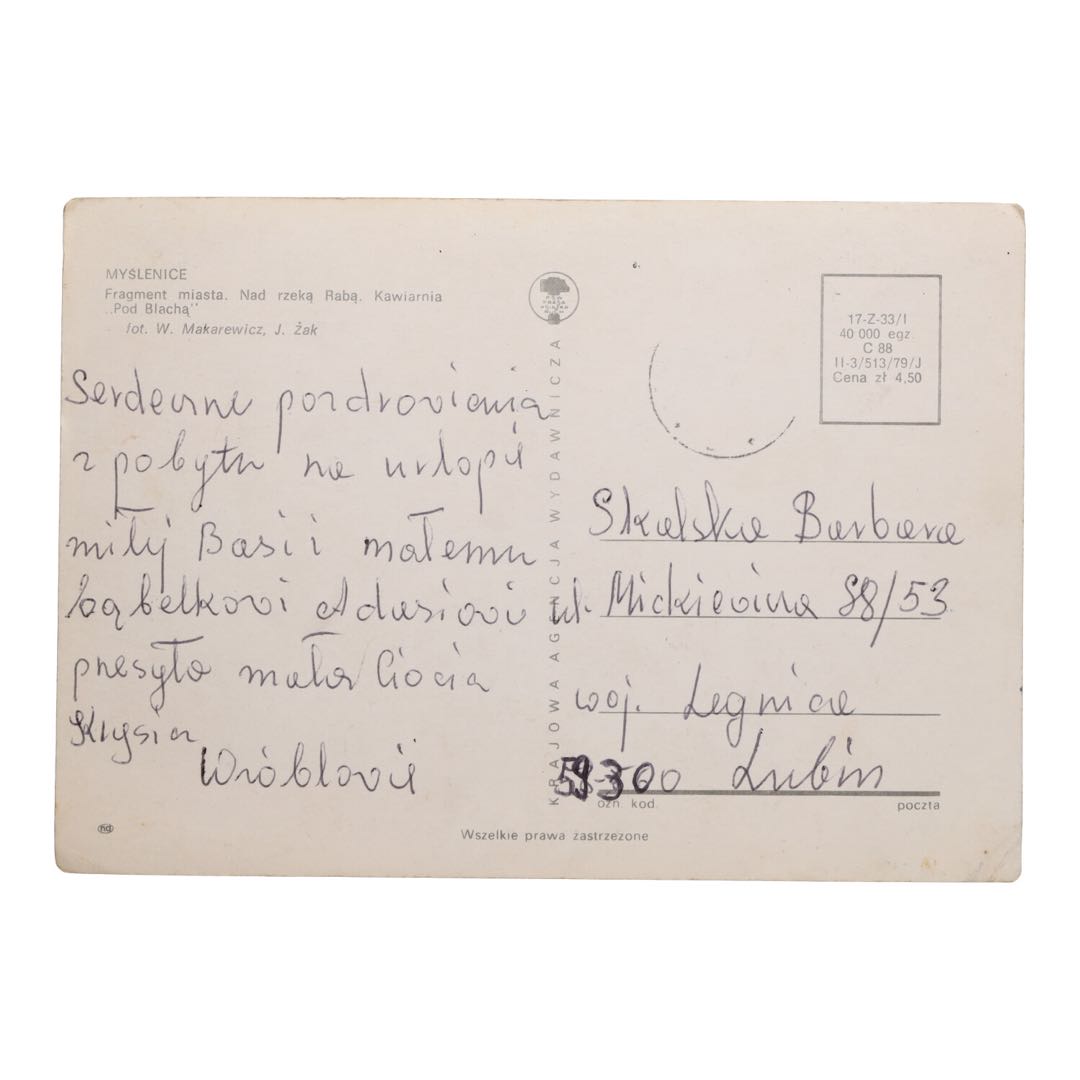 MYŚLENICE
Fragment miasta. Nad rzeką Rabą. Kawiarnia
„Pod Blachą"
fot. W. Makarewicz, J. Żak
Serdeczne pozdrowienia
z pobytu na urlopie
miłej Basi i małemu
bąbelkowi Adasiowi
przesyła mała Ciocia
Krysia
Wróblowie
KRAJOWA AGENCJA WYDAWNICZA
17-Z-33/I
40 000 egz.
C 88
II-3/513/79/J
Cena zł 4,50
Skalska Barbara
ul. Mickiewicza 88/53
woj. Legnica
59300 Lubin
ozn. kod.
poczta
Wszelkie prawa zastrzeżone